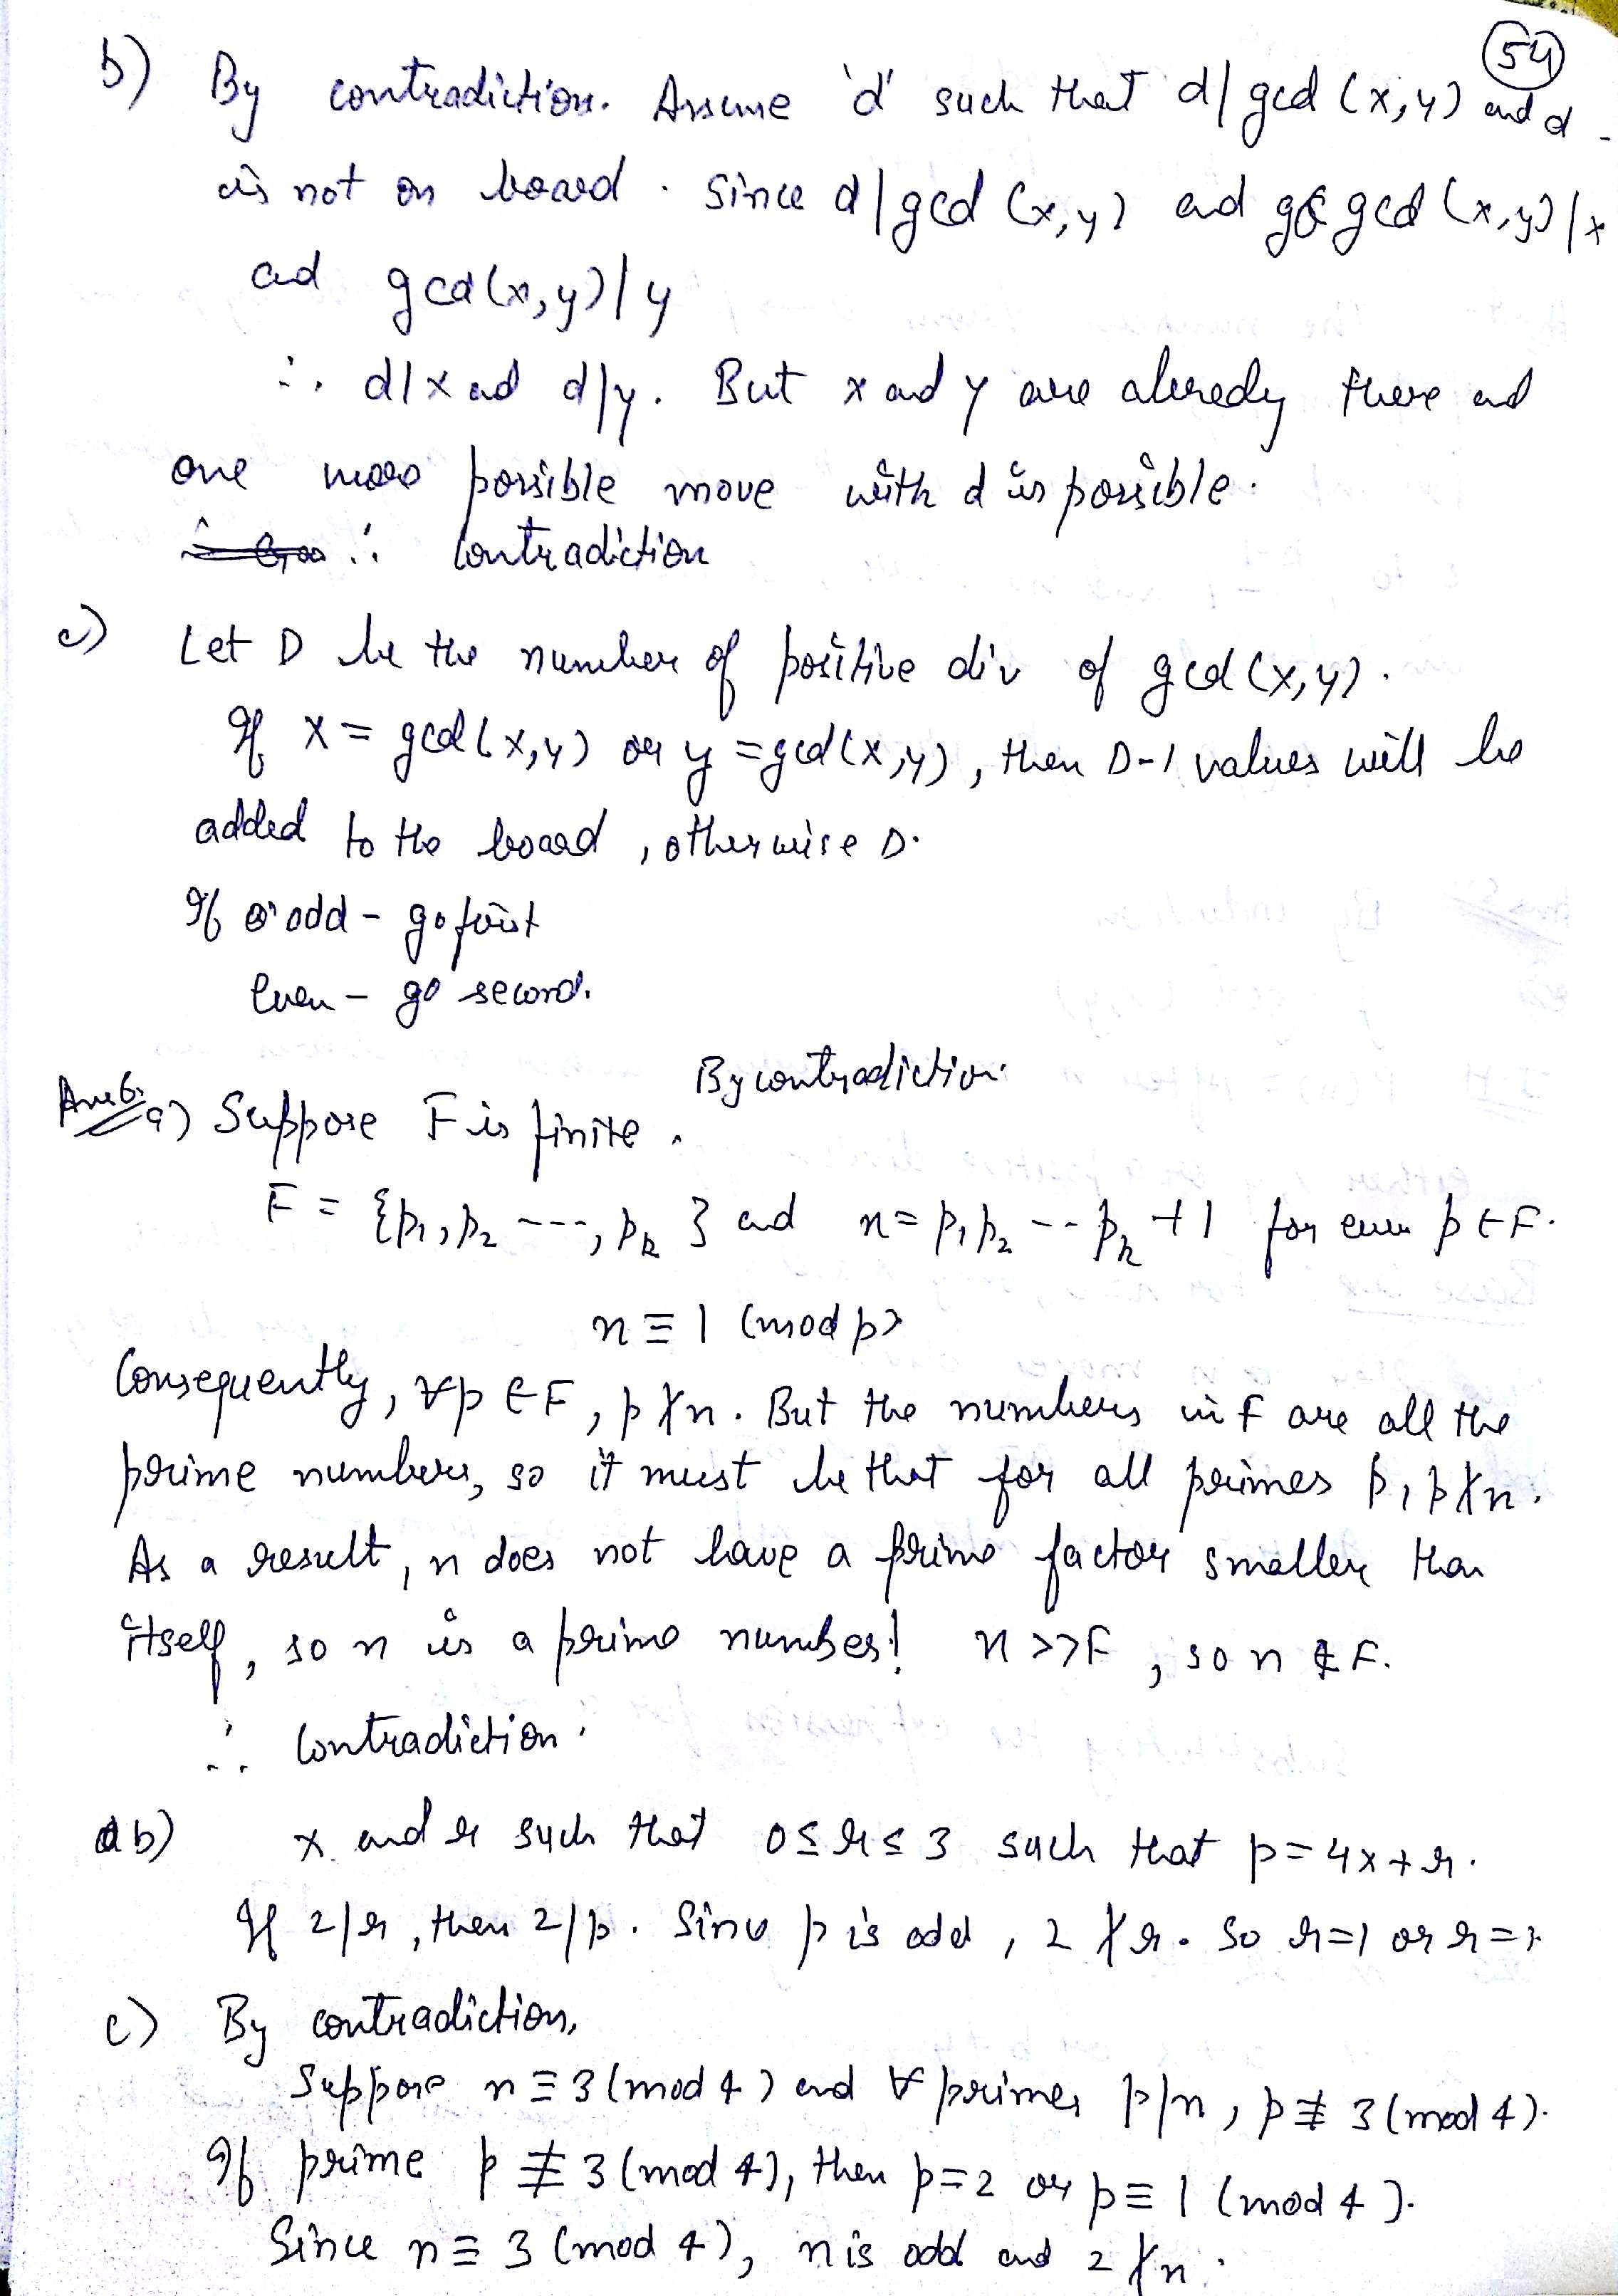 54
b) By contradiction. Assume 'd' such that d | gcd (x,y) and d
is not on board. Since d | gcd (x,y) and gcd (x,y) | x
and gcd(x,y) | y
∴ d|x and d|y. But x and y are already there and
one more possible move with d is possible.
∴ Contradiction
c) Let D be the number of positive div of gcd (x,y).
If x = gcd(x,y) or y = gcd(x,y), then D-1 values will be
added to the board, otherwise D.
If odd - go first
Even - go second.
Ans6. a) Suppose F is finite. By contradiction.
F = {p₁, p₂ ---, pₖ } and n = p₁p₂ -- pₖ +1 for p ∈ F.
n ≡ 1 (mod p)
Consequently, ∀p ∈ F, p ∤ n. But the numbers in F are all the
prime numbers, so it must be that for all primes p, p ∤ n.
As a result, n does not have a prime factor smaller than
itself, so n is a prime number! n >> F, so n ∉ F.
∴ Contradiction.
b) x and r such that 0 ≤ r ≤ 3 such that p = 4x + r.
If 2|r, then 2|p. Since p is odd, 2 ∤ r. So r=1 or r=3
c) By contradiction,
Suppose n ≡ 3 (mod 4) and ∀ primes p|n, p ≢ 3 (mod 4).
If prime p ≢ 3 (mod 4), then p=2 or p ≡ 1 (mod 4).
Since n ≡ 3 (mod 4), n is odd and 2 ∤ n.